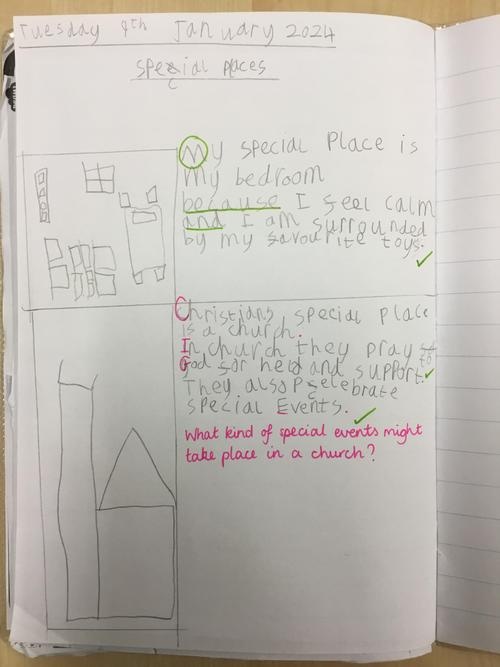 Tuesday 9th January 2024
special places
My special Place is
My bedroom
because I feel calm
and I am surrounded
by my favourite toys.
Christians special place
is a church.
In church they pray to
God for help and support.
They also celebrate
special Events.
What kind of special events might
take place in a church?